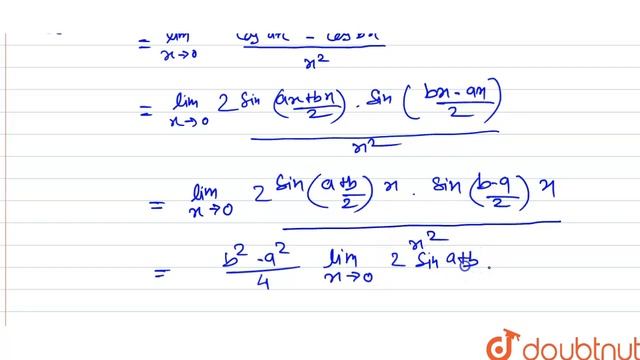 = lim x→0 cos ax - cos bx / x²
= lim x→0 2 sin (ax+bx / 2) . sin (bx-ax / 2) / x²
= lim x→0 2 sin (a+b / 2) x . sin (b-a / 2) x / x²
= b² - a² / 4 lim x→0 2 sin a+b .
doubtnut